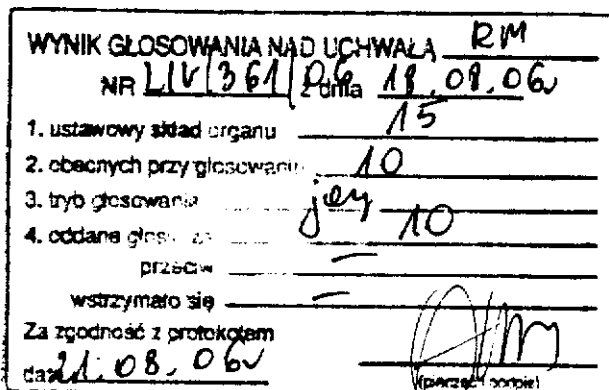 WYNIK GŁOSOWANIA NAD UCHWAŁĄ RM
NR LIV/361/06 z dnia 18.08.06r
1. ustawowy skład organu 15
2. obecnych przy głosowaniu 10
3. tryb głosowania
4. oddane głosy za 10
przeciw —
wstrzymało się —
Za zgodność z protokołem
data 21.08.06r
(pieczęć i podpis)